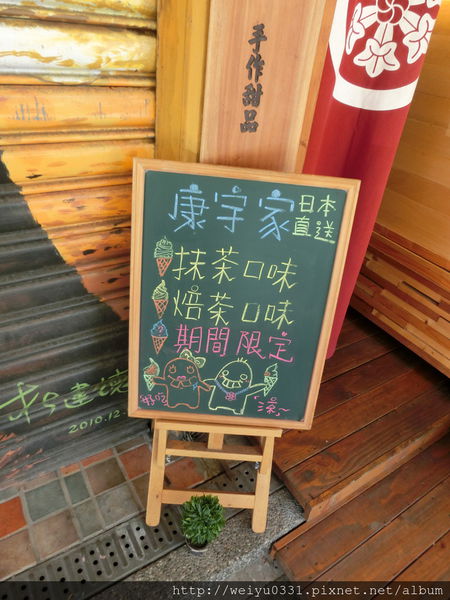 手作甜品
康宇家
日本
直送
抹茶口味
焙茶口味
期間限定
好吃
涼~
2010.12
http://weiyu0331.pixnet.net/album